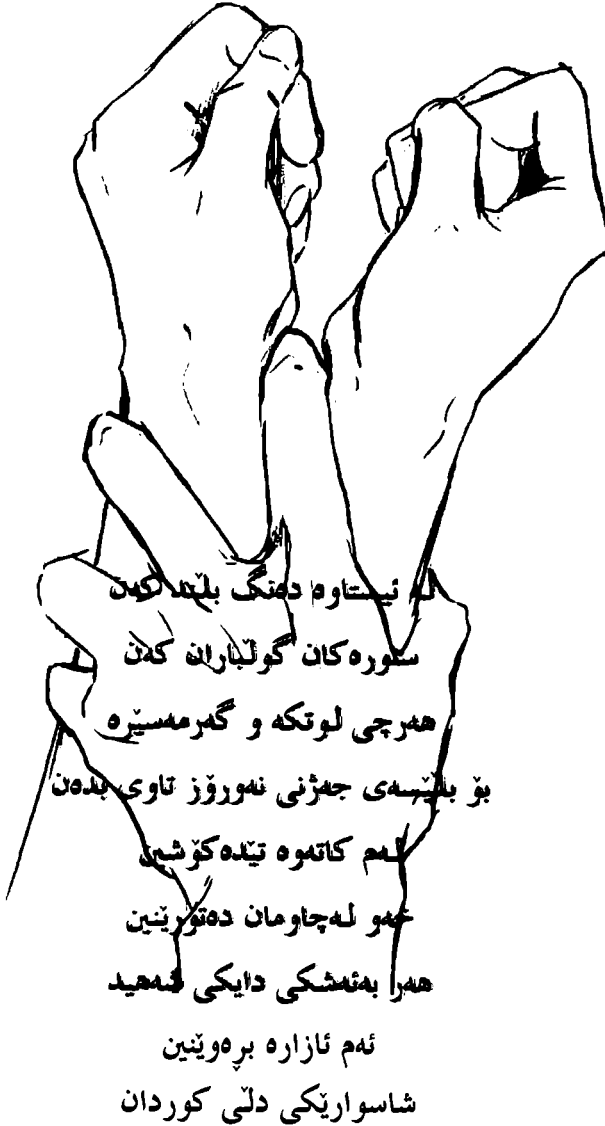 لە ئیستاوە دەنگ بڵند کەن
سنورەکان گوڵباران کەن
هەرچی لوتکە و گەرمەسێرە
بۆ بڵێسەی جەژنی نەورۆز تاوی بدەن
لەم کاتەوە تێدەکۆشین
خەو لەچاومان دەتۆرێنین
هەر بەئەشکی دایکی شەهید
ئەم ئازارە بڕەوێنین
شاسوارێکی دڵی کوردان